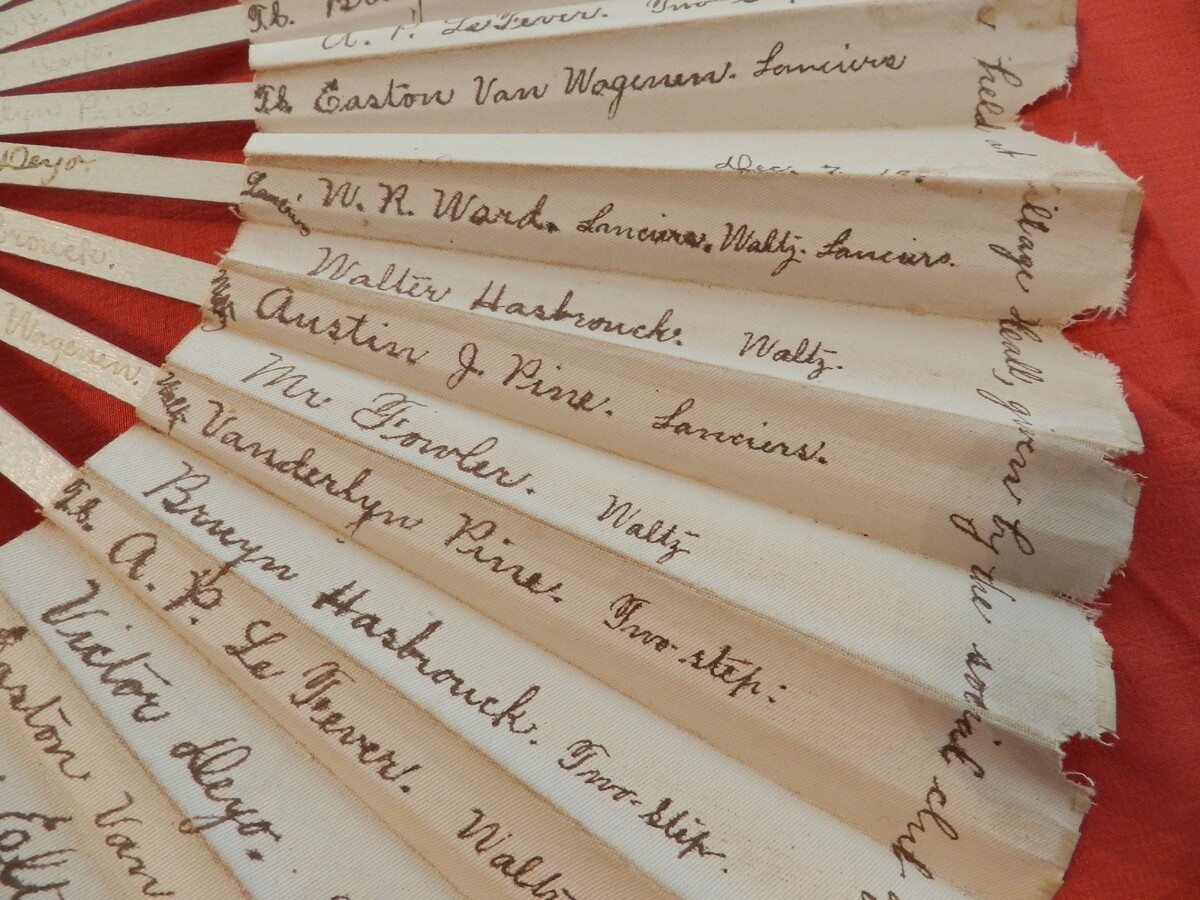 T.b.
A. P. LeFever. Two-
T.b. Easton Van Wagenen. Lanciers
Dec. 7,
Lanciers W. R. Ward. Lanciers. Waltz. Lanciers.
Walter Hasbrouck. Waltz.
Waltz Austin J. Pine. Lanciers.
Mr Fowler. Waltz
Waltz Vanderlyn Pine. Two-step.
Bruyn Hasbrouck. Two-step.
T.b. A. P. Le Fever. Waltz
Victor Deyo.
Easton Van
Elt
held at
Village Hall, given by the social club
Deyo.
Pine
Deyo.
rouck.
Wagenen.